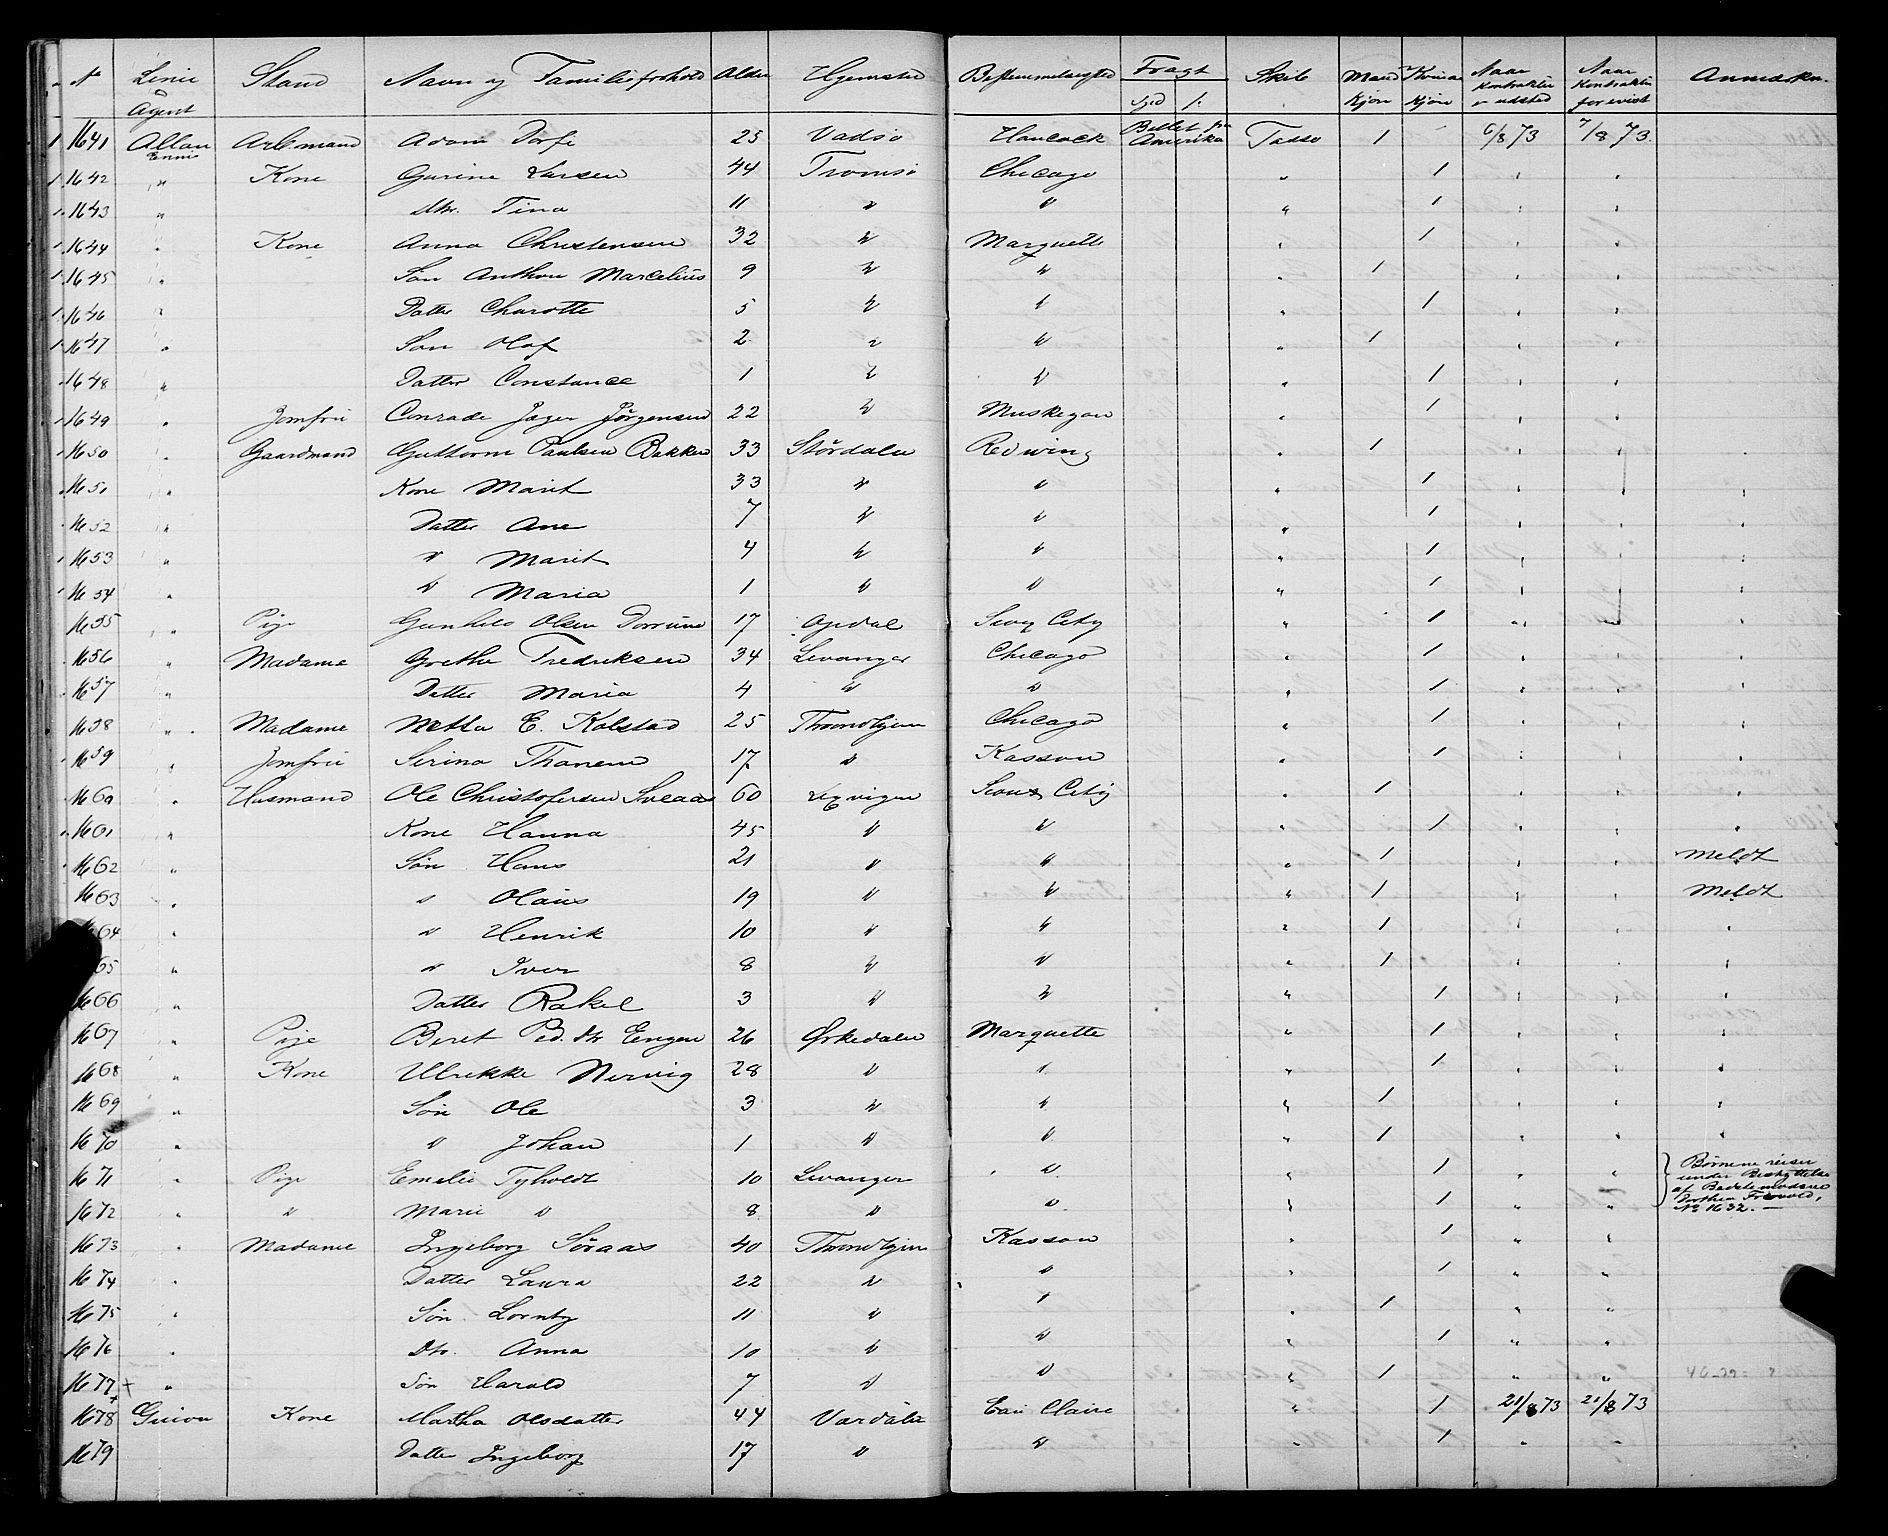 No Linie & Agent Stand Navn og Familieforhold Alder Hjemsted Bestemmelsessted Fragt Spd /: Skib Mand Kjøn Kvinde Kjøn Naar Kontrakten er udsted Naar Kontrakten forevist Anmærkn.
1 1641 Allan Ennis Arbmand Adam Dorfe 25 Vadsø Hancock Billet fra Amerika Tasso 1 6/8 73 7/8 73.
1 1642 " Kone Gurine Larsen 44 Tromsø Chicago " 1 " "
1643 " Dtr. Tina 11 " " " 1 " "
1644 " Kone Anna Christensen 32 " Marquette " 1 " "
1645 " Søn Anthon Marcelius 9 " " " 1 " "
1646 " Datter Charotte 5 " " " 1 " "
1647 " Søn Olaf 2 " " " 1 " "
1648 " Datter Constance 1 " " " 1 " "
1649 " Jomfru Conrade Jæger Jørgensen 22 " Muskegon " 1 " "
1650 " Gaardmand Guttorm Paulsen Bakken 33 Størdalen Redwing " 1 " " "
1651 " Kone Marit 33 " " " 1 " " "
1652 " Datter Ane 7 " " " 1 " " "
1653 " " Marit 4 " " " 1 " " "
1654 " " Maria 1 " " " 1 " " "
1655 " Pige Gunhild Olsen 17 Opdal City " 1 " " "
1656 " Madame Grethe Fredriksen 34 Levanger Chicago " 1 " " "
1657 " Datter Maria 4 " " " 1 " " "
1658 " Madame Metta E. Kolstad 25 Throndhjem Chicago " 1 " " "
1659 " Jomfru Serina Thanem 17 " Kasson " 1 " " "
1660 " Husmand Ole Christofersen Sveaas 60 Lexvigen Sioux City " 1 " " "
1661 " Kone Hanna 45 " " " 1 " " "
1662 " Søn Hans 21 " " " 1 " " Meldt
1663 " " Olaus 19 " " " 1 " " Meldt
64 " " Henrik 10 " " " 1 " " "
65 " " Iver 8 " " " 1 " " "
1666 " Datter Rakel 3 " " " 1 " " "
1667 " Pige Beret Ped. dtr Engen 26 Ørkedalen Marquette " 1 " " "
1668 " Kone Ulrikke Nervig 28 " " " 1 " " "
1669 " Søn Ole 3 " " " 1 " " "
1670 " " Johan 1 " " " 1 " " "
1671 " Pige Emelie Tyholdt 10 Levanger " " 1 " " } Børnene reiser under Beskyttelse
1672 " " Marie " 8 " " " 1 " " af Bedstemoderen Dorthea No 1632. —
1673 " Madame Ingeborg Søraas 40 Throndhjem Kasson " 1 " "
1674 " Datter Laura 22 " " " 1 " "
1675 " Søn Lorntz 11 " " " 1 " "
1676 " Dtr. Anna 10 " " " 1 " "
1677 + " Søn Harald 7 " " " 1 " "
1678 Guion Kone Martha Olsdatter 44 Værdalen Eau Claire " 1 21/8 73 21/8 73
1679 Datter Ingeborg 17 " " " 1 " "